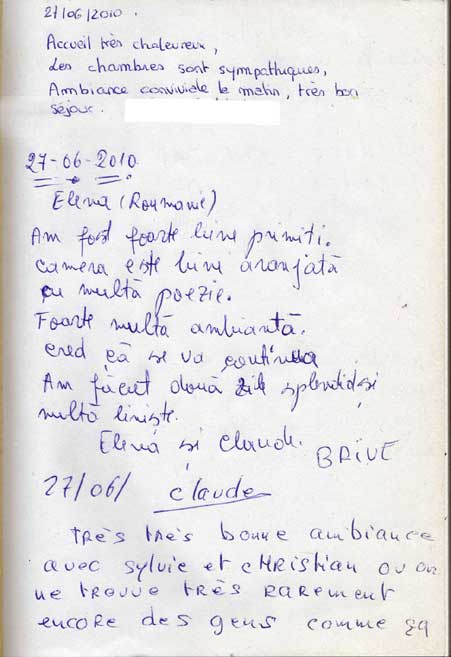 27/06/2010.
Accueil très chaleureux,
Les chambres sont sympathiques,
Ambiance conviviale le matin, très bon
séjour.
27-06-2010.
Elena (Roumanie)
Am fost foarte bine primiti.
camera este bine aranjată
cu multă poezie.
Foarte multă ambiantă.
cred că se va continua
Am făcut două zile splendide și
multă liniște.
Elena și Claude.
BRIVE
27/06/ Claude
TRÈS TRÈS bonne ambiance
avec sylvie et CHRISTIAN ou on
ne trouve TRÈS RAREMENT
encore des gens comme ça